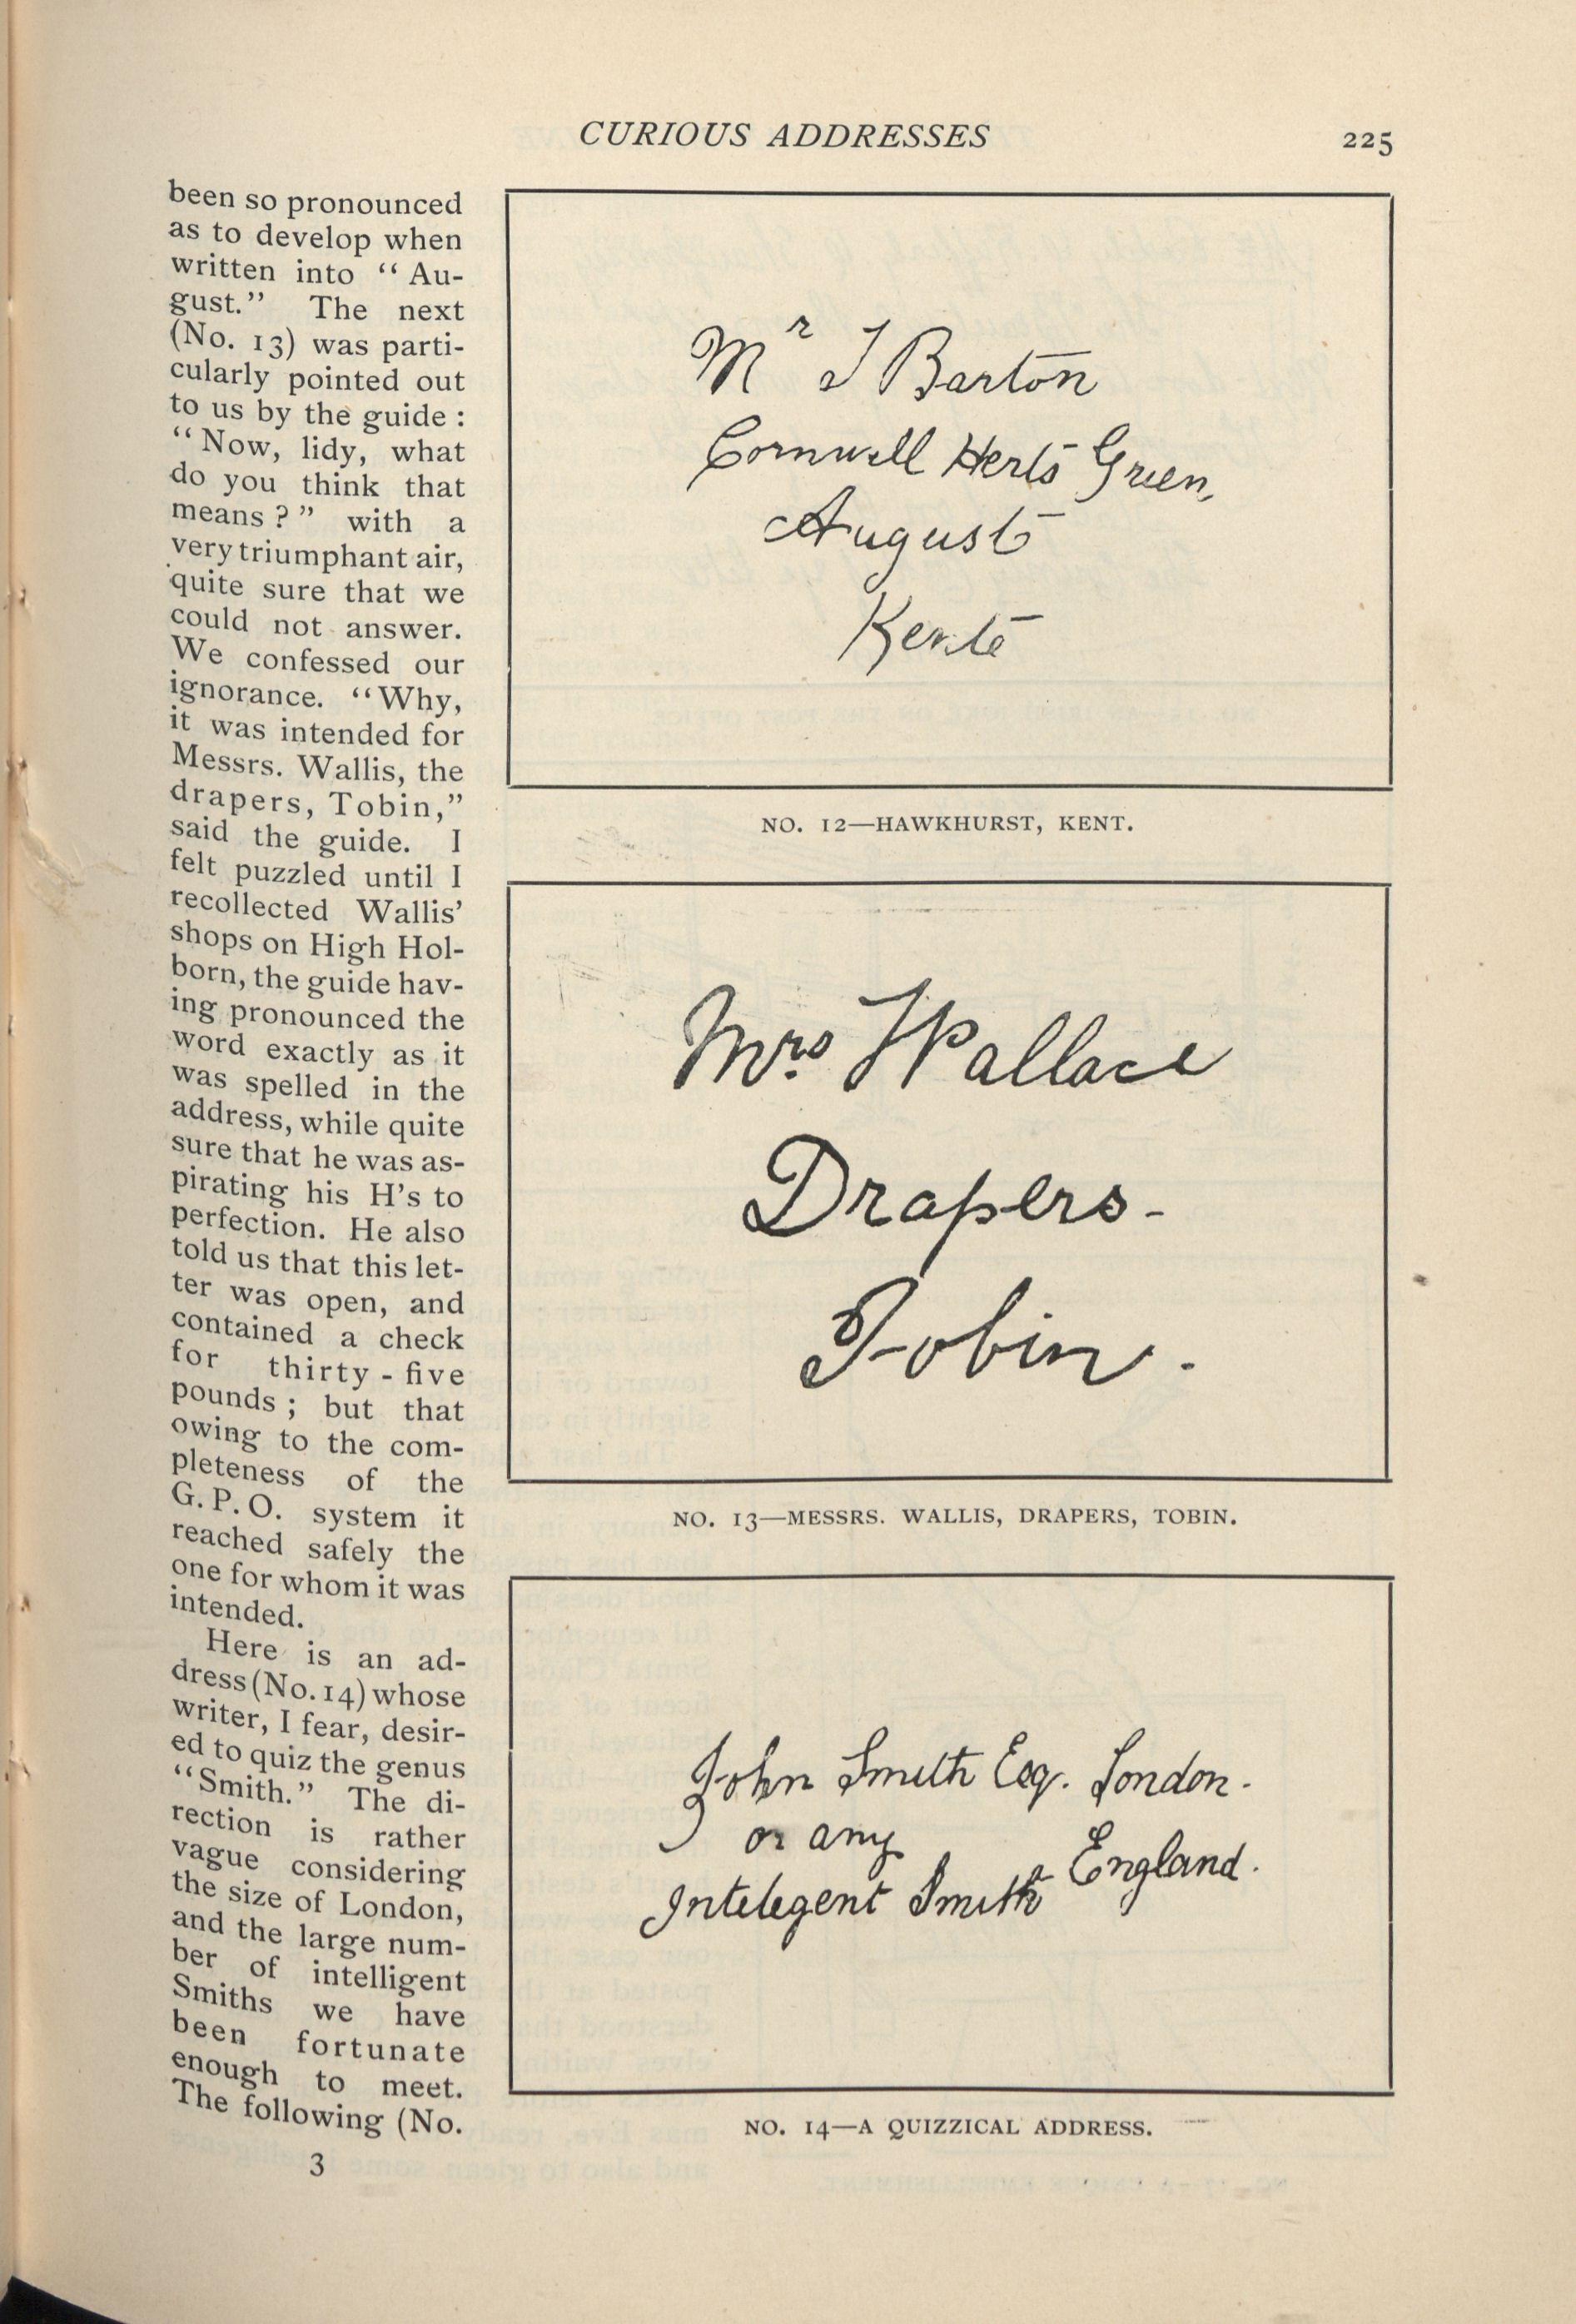 CURIOUS ADDRESSES
225
been so pronounced
as to develop when
written into “Au-
gust.” The next
(No. 13) was parti-
cularly pointed out
to us by the guide :
“Now, lidy, what
do you think that
means ?” with a
very triumphant air,
quite sure that we
could not answer.
We confessed our
ignorance. “Why,
it was intended for
Messrs. Wallis, the
drapers, Tobin,”
said the guide. I
felt puzzled until I
recollected Wallis’
shops on High Hol-
born, the guide hav-
ing pronounced the
word exactly as it
was spelled in the
address, while quite
sure that he was as-
pirating his H’s to
perfection. He also
told us that this let-
ter was open, and
contained a check
for thirty-five
pounds ; but that
owing to the com-
pleteness of the
G. P. O. system it
reached safely the
one for whom it was
intended.
Here is an ad-
dress (No. 14) whose
writer, I fear, desir-
ed to quiz the genus
“Smith.” The di-
rection is rather
vague considering
the size of London,
and the large num-
ber of intelligent
Smiths we have
been fortunate
enough to meet.
The following (No.
3
Mr J Barton
Cornwell Herts Green,
August
Kente
NO. 12—HAWKHURST, KENT.
Mrs Wallace
Drapers-
Tobin.
NO. 13—MESSRS. WALLIS, DRAPERS, TOBIN.
John Smith Esq. London.
or any
Intelegent Smith England.
NO. 14—A QUIZZICAL ADDRESS.